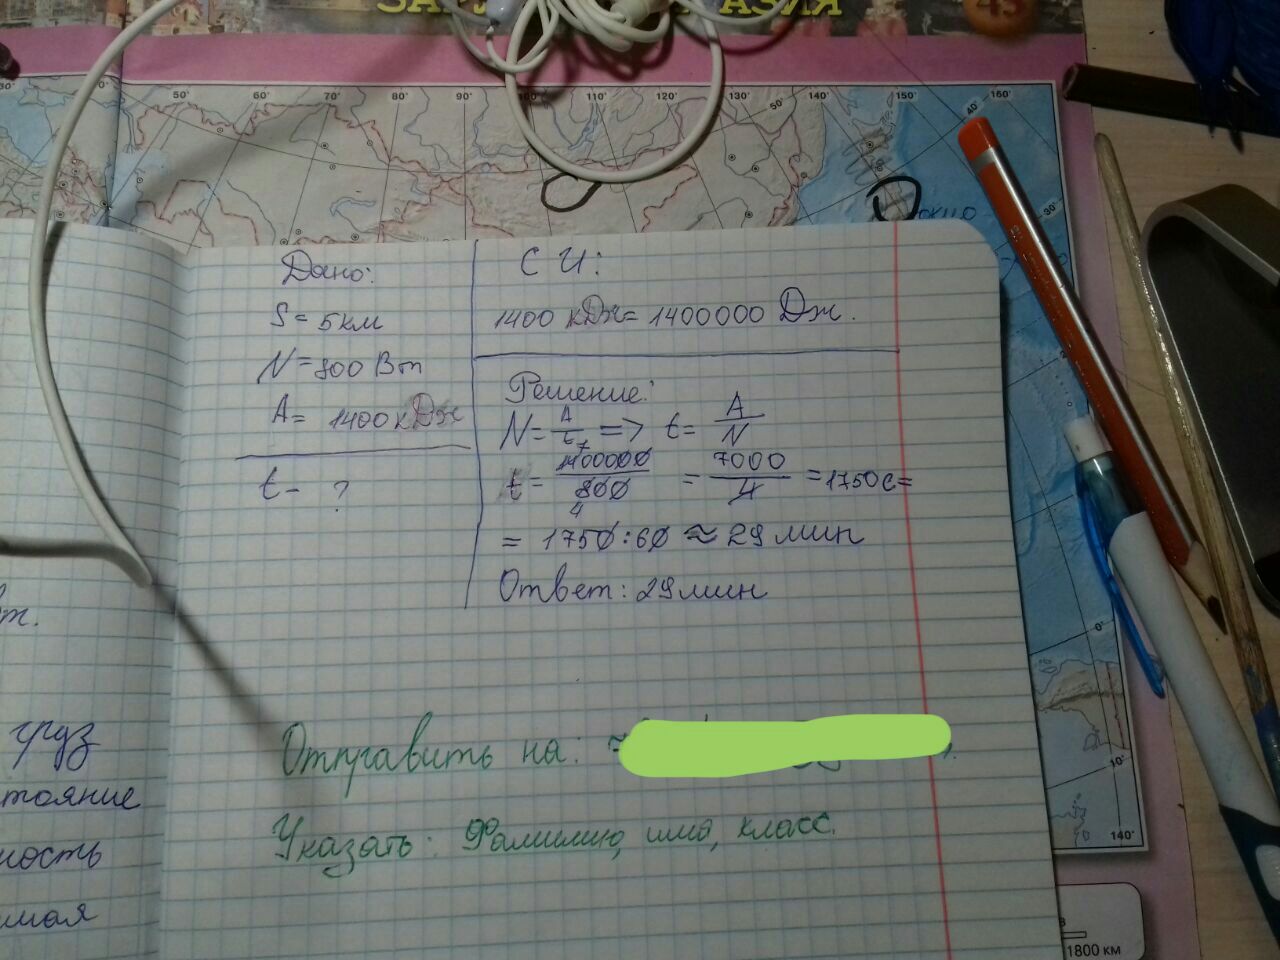 АЗИЯ
45
30°
0°
50°
60°
70°
80°
90°
100°
110°
120°
130°
50°
140°
150°
40°
160°
30°
Дано:
S = 5 км
N = 800 Вт
A = 1400 кДж
t - ?
СИ:
1400 кДж = 1400000 Дж.
Решение:
N = A/t => t = A/N
t = 1400000/800 = 7000/4 = 1750 с =
= 1750 : 60 ≈ 29 мин
Ответ: 29 мин
Отправить на:
Указать: Фамилию, имя, класс.
груз
тояние
ность
мая
0°
10°
140°
1800 км